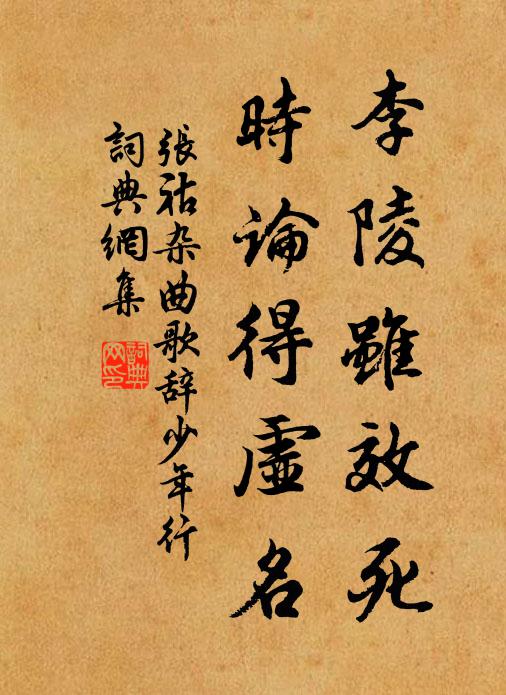 李陵雖效死
時論得虛名
張祜杂曲歌辞少年行
詞典網集
詞典網印